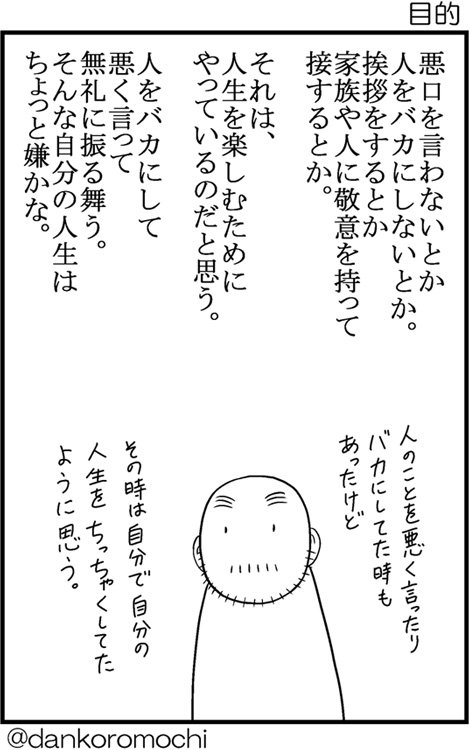 目的
悪口を言わないとか
人をバカにしないとか。
挨拶をするとか
家族や人に敬意を持って
接するとか。
それは、
人生を楽しむために
やっているのだと思う。
人をバカにして
悪く言って
無礼に振る舞う。
そんな自分の人生は
ちょっと嫌かな。
人のことを悪く言ったり
バカにしてた時も
あったけど
その時は自分で自分の
人生をちっちゃくしてた
ように思う。
@dankoromochi